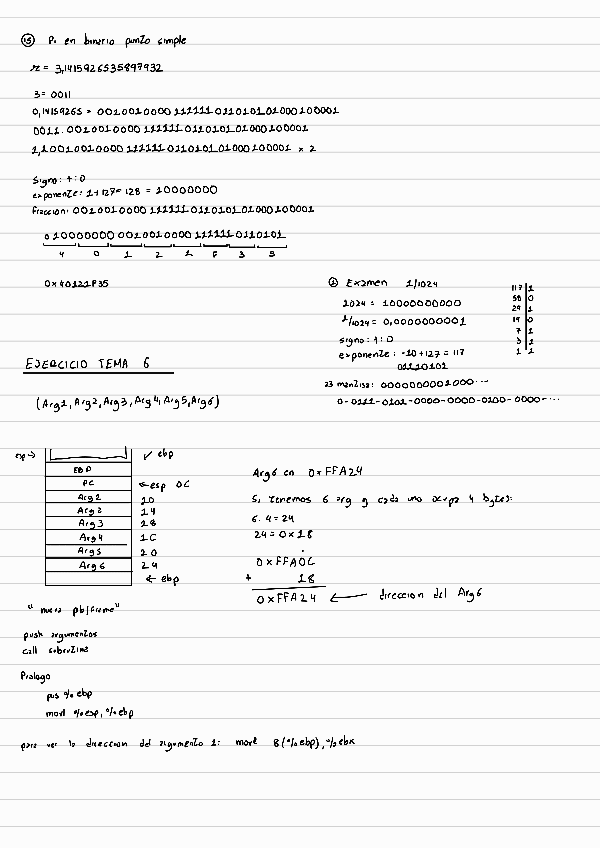 15 Pi en binario punto simple
π = 3,1415926535897932
3 = 0011
0,14159265 = 0010010000 111111 0110101 01000100001
0011.0010010000 111111 0110101 01000100001
1,1001001 0000 111111 0110101 01000100001 x 2
Signo: +: 0
exponente: 1+127= 128 = 10000000
Fraccion: 0010010000 111111 0110101 01000100001
0 10000000 0010010000 111111 0110101
4 0 1 2 1 F 3 5
0x40121F35
② Examen 1/1024
1024 = 10000000000
1/1024 = 0,0000000001
signo: +: 0
exponente: -10+127 = 117
01110101
23 mantisa: 0000000001000...
0-0111-0101-0000-0000-0100-0000-...
117 1
58 0
29 1
14 0
7 1
3 1
1 1
EJERCICIO TEMA 6
(Arg1, Arg2, Arg3, Arg4, Arg5, Arg6)
esp → ✓ ebp
EBP
PC ← esp 0C
Arg 1 10
Arg 2 14
Arg 3 18
Arg 4 1C
Arg 5 20
Arg 6 24
← ebp
Arg 6 en 0xFFA24
Si tenemos 6 arg y cada uno ocupa 4 bytes:
6 · 4 = 24
24 = 0x18
0xFFA0C
+ 18
0xFFA24 ← direccion del Arg 6
push argumentos
call subrutina
Prologo
pus %ebp
movl %esp, %ebp
para ver la direccion del argumento 1: movl 8(%ebp), %ebx